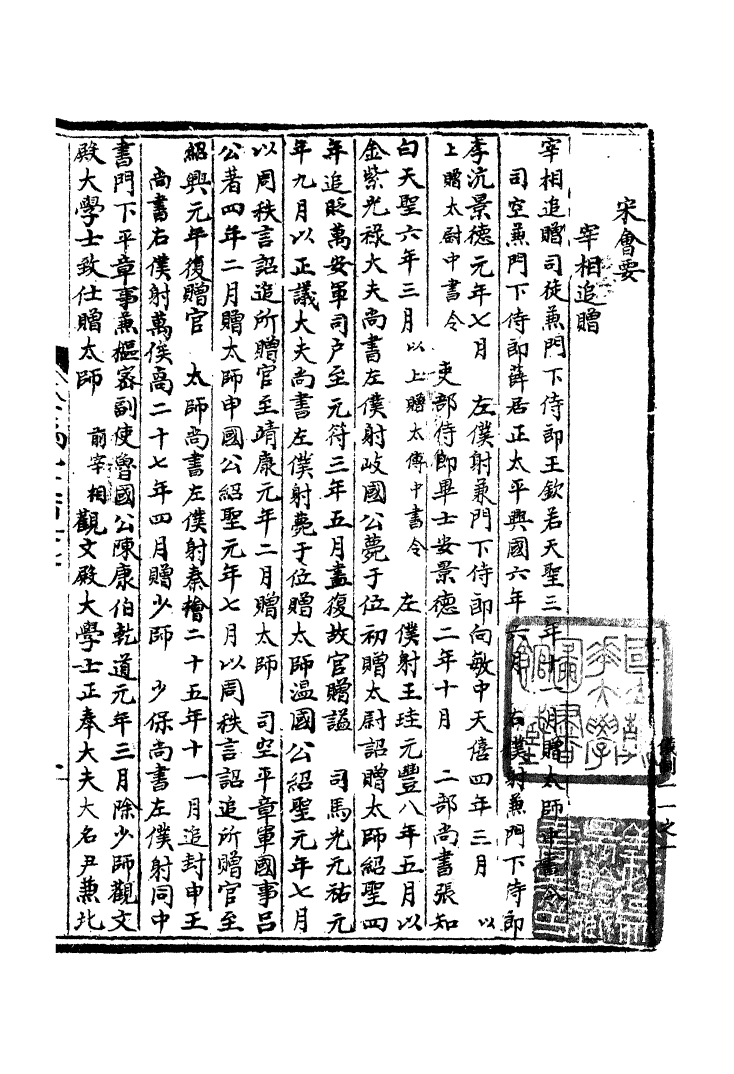 宋會要
宰相追贈
宰相追贈司徒兼門下侍郎王欽若天聖三年十一月贈太師中書令
司空兼門下侍郎薛居正太平興國六年六月　右僕射兼門下侍郎
李沆景德元年七月　左僕射兼門下侍郎向敏中天僖四年三月　以
上贈太尉中書令　吏部侍郎畢士安景德二年十月　二部尚書張知
白天聖六年三月以上贈太傅中書令　左僕射王珪元豐八年五月以
金紫光祿大夫尚書左僕射岐國公薨于位初贈太尉詔贈太師紹聖四
年追貶萬安軍司户至元符三年五月盡復故官贈謚　司馬光元祐元
年九月以正議大夫尚書左僕射薨于位贈太師温國公紹聖元年七月
以周秩言詔追所贈官至靖康元年二月贈太師　司空平章軍國事吕
公著四年二月贈太師申國公紹聖元年七月以周秩言詔追所贈官至
紹興元年復贈官　太師尚書左僕射秦檜二十五年十一月追封申王
尚書右僕射萬俟卨二十七年四月贈少師　少保尚書左僕射同中
書門下平章事兼樞密副使魯國公陳康伯乾道元年三月除少師觀文
殿大學士致仕贈太師　前宰相觀文殿大學士正奉大夫大名尹兼北